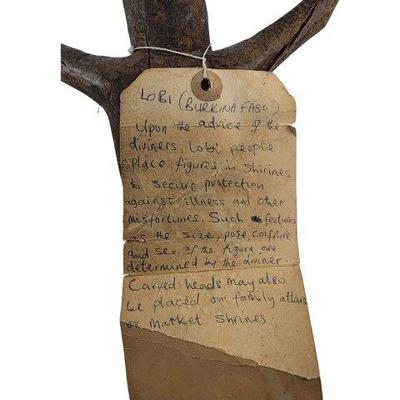 LOBI (BURKINA FASO)
Upon the advice of the
diviners, Lobi people
place figures in shirines
to secure protection
against illness and other
misfortunes. Such features
as the size, pose, coiffure
and sex of the figure are
determined by the diviner.
Carved heads may also
be placed on family altars
or market shrines